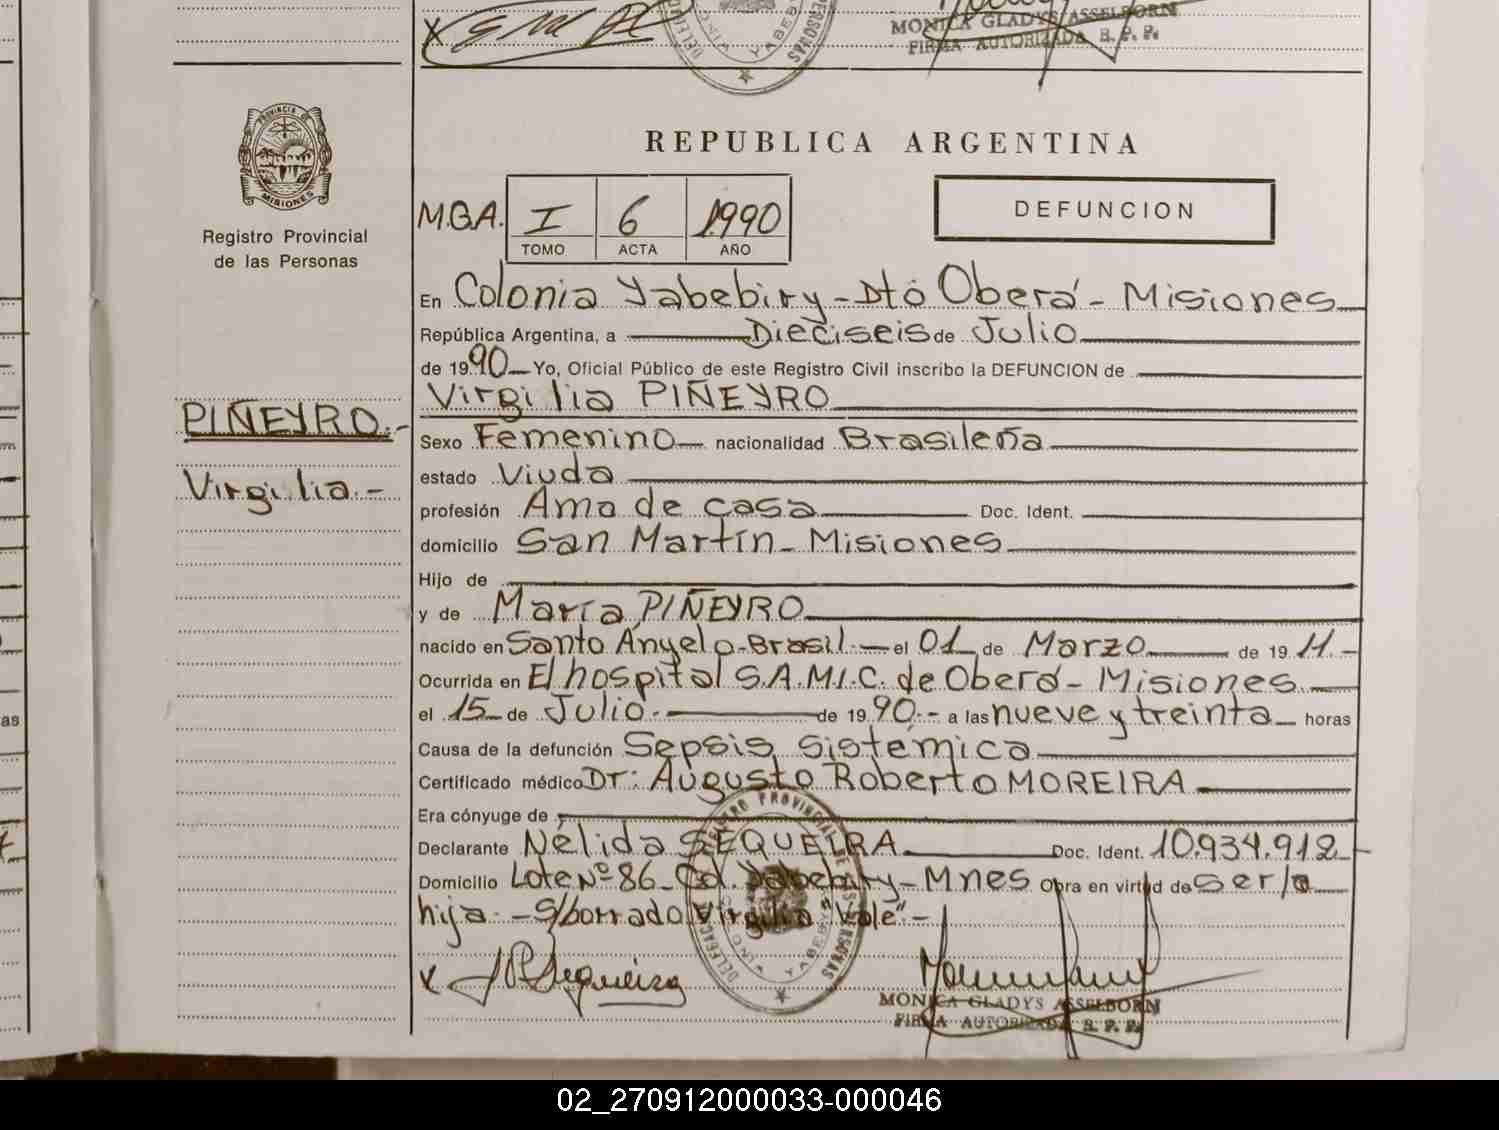 MONICA GLADYS ASSELBORN
FIRMA AUTORIZADA R. P. P.
PROVINCIA DE
MISIONES
Registro Provincial
de las Personas
REPUBLICA ARGENTINA
M.G.A. I 6 1990
TOMO ACTA AÑO
DEFUNCION
En Colonia Yabebiry - Dtó Oberá - Misiones
República Argentina, a Dieciseis de Julio
de 1990 Yo, Oficial Público de este Registro Civil inscribo la DEFUNCION de
Virgilia PIÑEYRO
PIÑEYRO.-
Virgilia.-
Sexo Femenino nacionalidad Brasileña
estado Viuda
profesión Ama de casa Doc. Ident.
domicilio San Martín - Misiones
Hijo de
y de María PIÑEYRO
nacido en Santo Ángelo-Brasil.- el 01 de Marzo de 1911.-
Ocurrida en El hospital S.A.M.I.C. de Oberá - Misiones
el 15 de Julio.- de 1990.- a las nueve y treinta horas
Causa de la defunción Sepsis sistémica
Certificado médico Dr: Augusto Roberto MOREIRA
Era cónyuge de
Declarante Nélida SEQUEIRA Doc. Ident. 10.934.912
Domicilio Lote Nº 86 - Col. Yabebiry - Mnes Obra en virtud de ser la
hija.- S/borrado "Virgilia Vale"-
X Sequeira
MONICA GLADYS ASSELBORN
FIRMA AUTORIZADA R. P. P.
02_270912000033-000046